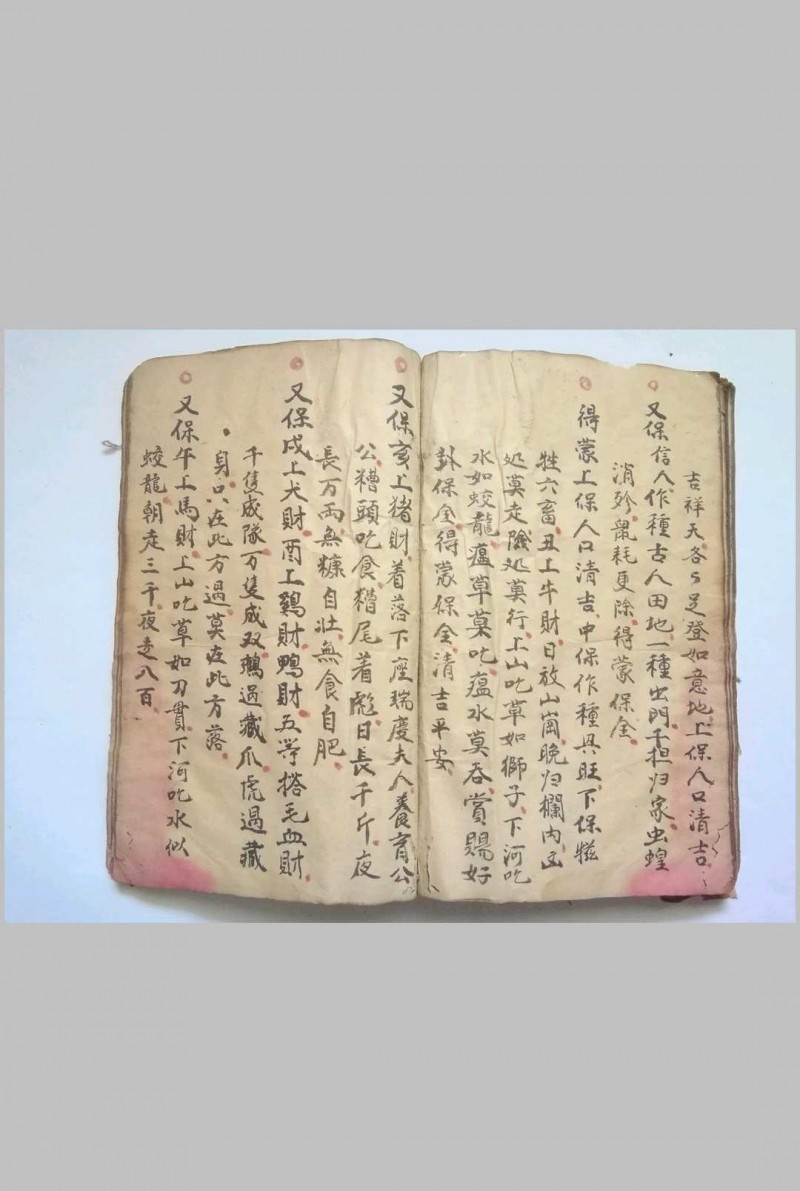 吉祥天各々足登如意地上保人口清吉
又保信人作種古人田地一種出門千担归家虫蝗
消殄鼠耗更除得蒙保全
得蒙上保人口清吉中保作種興旺下保犠
牲六畜丑上牛財日放山崗晚归欄内凶
処莫走险処莫行上山吃草如獅子下河吃
水如蛟龍瘟草莫吃瘟水莫吞賞賜好
卦保全得蒙保全清吉平安
又保亥上猪財着落下座瑞慶夫人養育公
公糟頭吃食糟尾着彪日長千斤夜
長万両無糠自壮無食自肥
又保戌上犬財酉上鷄財鸭財五等搭毛血財
千隻成隊万隻成双鹅過藏爪虎過藏
身口在此方過莫在此方落
又保午上馬財上山吃草如刀貫下河吃水似
蛟龍朝走三千夜走八百